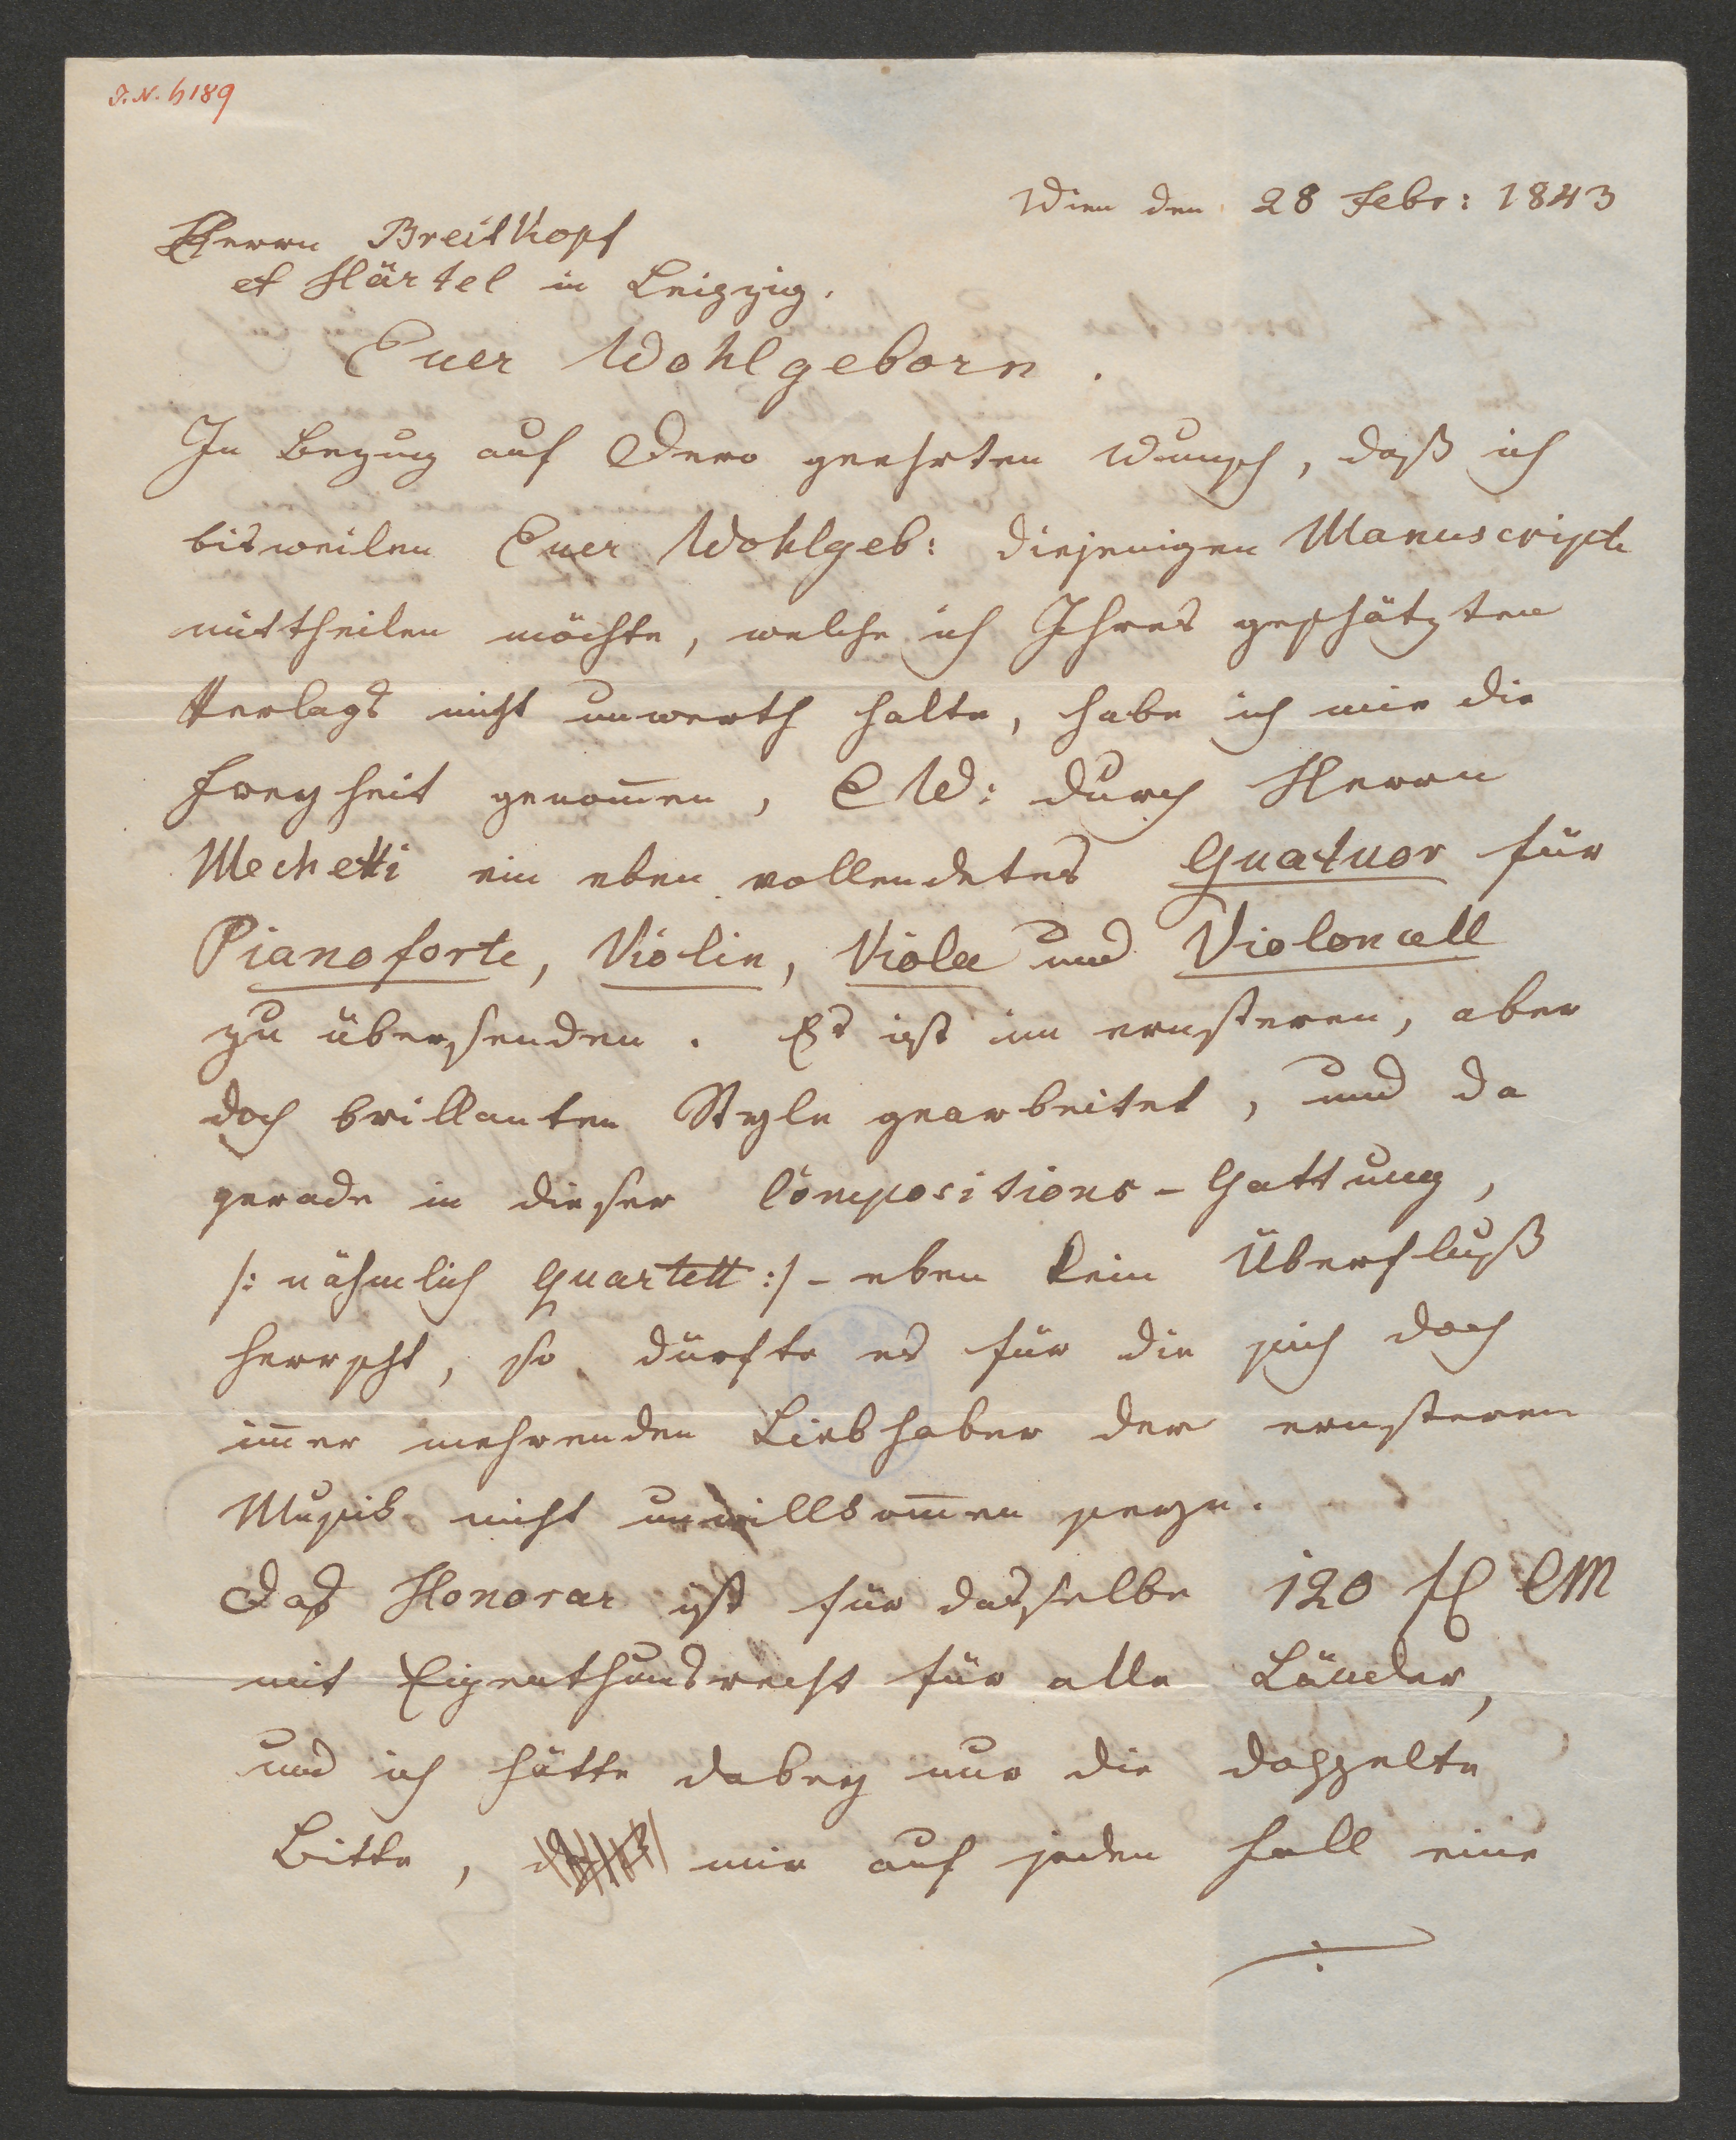 I. N. 6189
Wien den 28 Febr: 1843
Herrn Breitkopf
et Härtel in Leipzig.
Euer Wohlgeborn.
In Bezug auf Dero geehrten Wunsch, daß ich
bisweilen Euer Wohlgeb: diejenigen Manuscripte
mittheilen möchte, welche ich Ihres geschätzten
Verlags nicht unwerth halte, habe ich mir die
Freyheit genom̄en, EW: durch Herrn
Mechetti ein eben vollendetes Quatuor für
Pianoforte, Violin, Viola und Violoncell
zu übersenden. Es ist im ernsteren, aber
doch brillanten Style gearbeitet, und da
gerade in dieser Compositions-Gattung,
/: nähmlich Quartett :/ - eben kein Überfluß
herrscht, so dürfte es für die sich doch
im̄er mehrenden Liebhaber der ernsteren
Musik nicht unwillkom̄en seyn.
Das Honorar ist für dasselbe 120 fl CM
mit Eigenthumsrecht für alle Länder,
und ich hätte dabey nur die doppelte
Bitte, mir auf jeden Fall eine